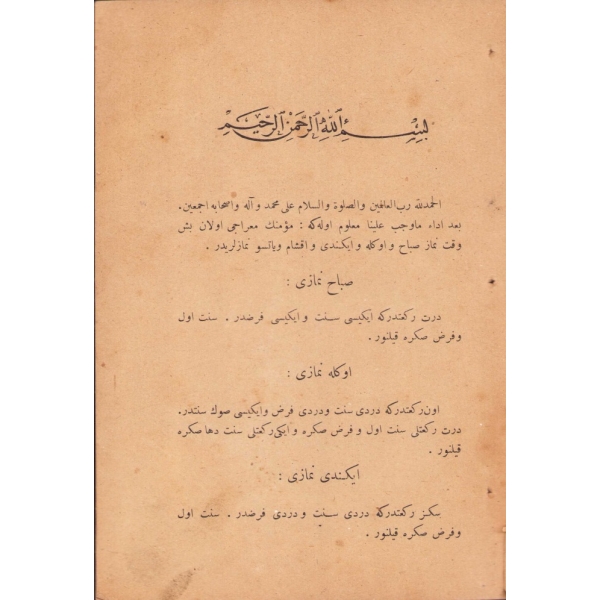 بسم الله الرحمن الرحيم
الحمدلله رب العالمين والصلوة والسلام على محمد وآله واصحابه اجمعين.
بعد اداء ماوجب علينا معلوم اوله‌كه : مؤمنك معراجى اولان بش
وقت نماز صباح و اوكله و ايكندى و اقشام وياتسو نمازلريدر .
صباح نمازى :
درت ركعتدركه ايكيسى سنت و ايكيسى فرضدر . سنت اول
وفرض صكره قيلنور .
اوكله نمازى :
اون ركعتدركه دردى سنت ودردى فرض وايكيسى صوك سنتدر.
درت ركعتلى سنت اول و فرض صكره و ايكى ركعتلى سنت دها صكره
قيلنور .
ايكندى نمازى :
سكز ركعتدركه دردى سنت و دردى فرضدر . سنت اول
وفرض صكره قيلنور .